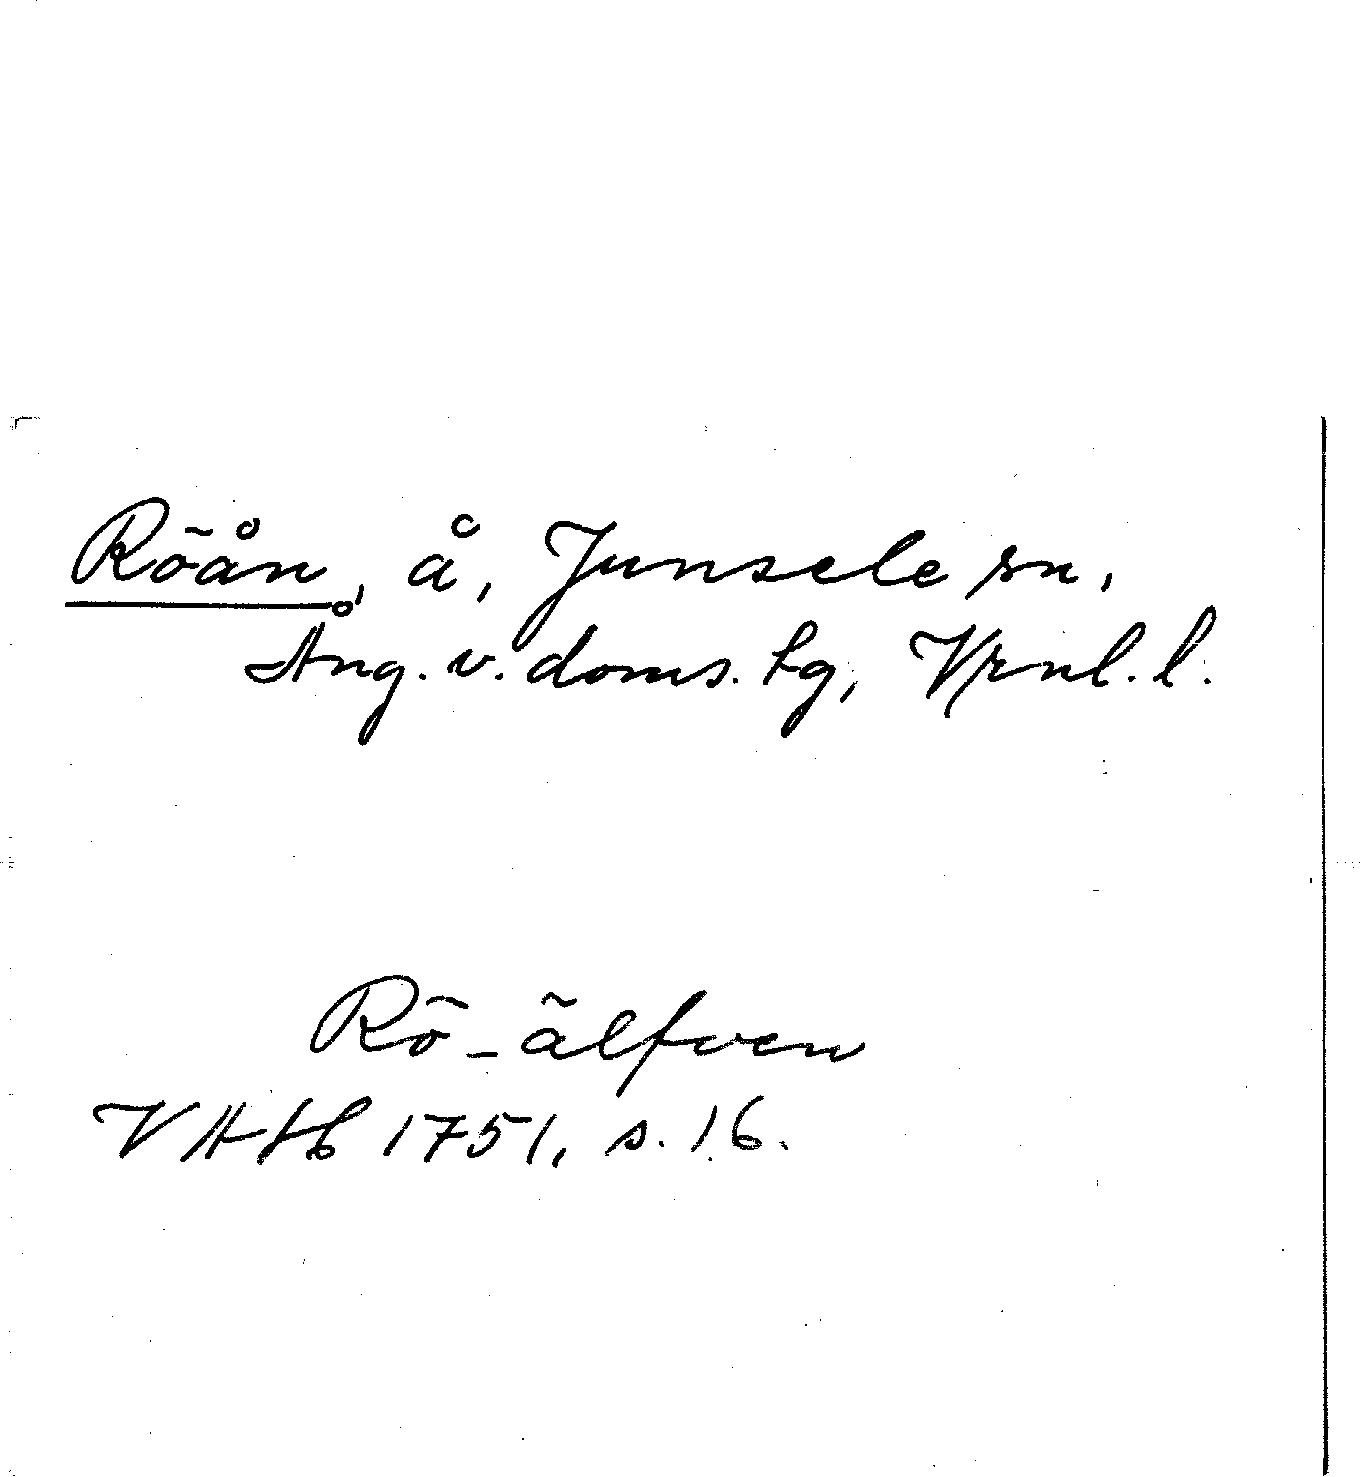 Röån, å, Junsele sn,
Ång. v. doms. tg, Vrnl. l.
Rö-älfven
VAHb 1751, s. 16.